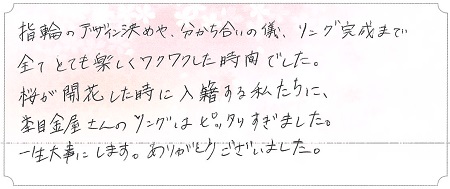 指輪のデザイン決めや、分かち合いの儀、リング完成まで
全てとても楽しくワクワクした時間でした。
桜が開花した時に入籍する私たちに、
杢目金屋さんのリングはピッタリすぎました。
一生大事にします。ありがとうございました。